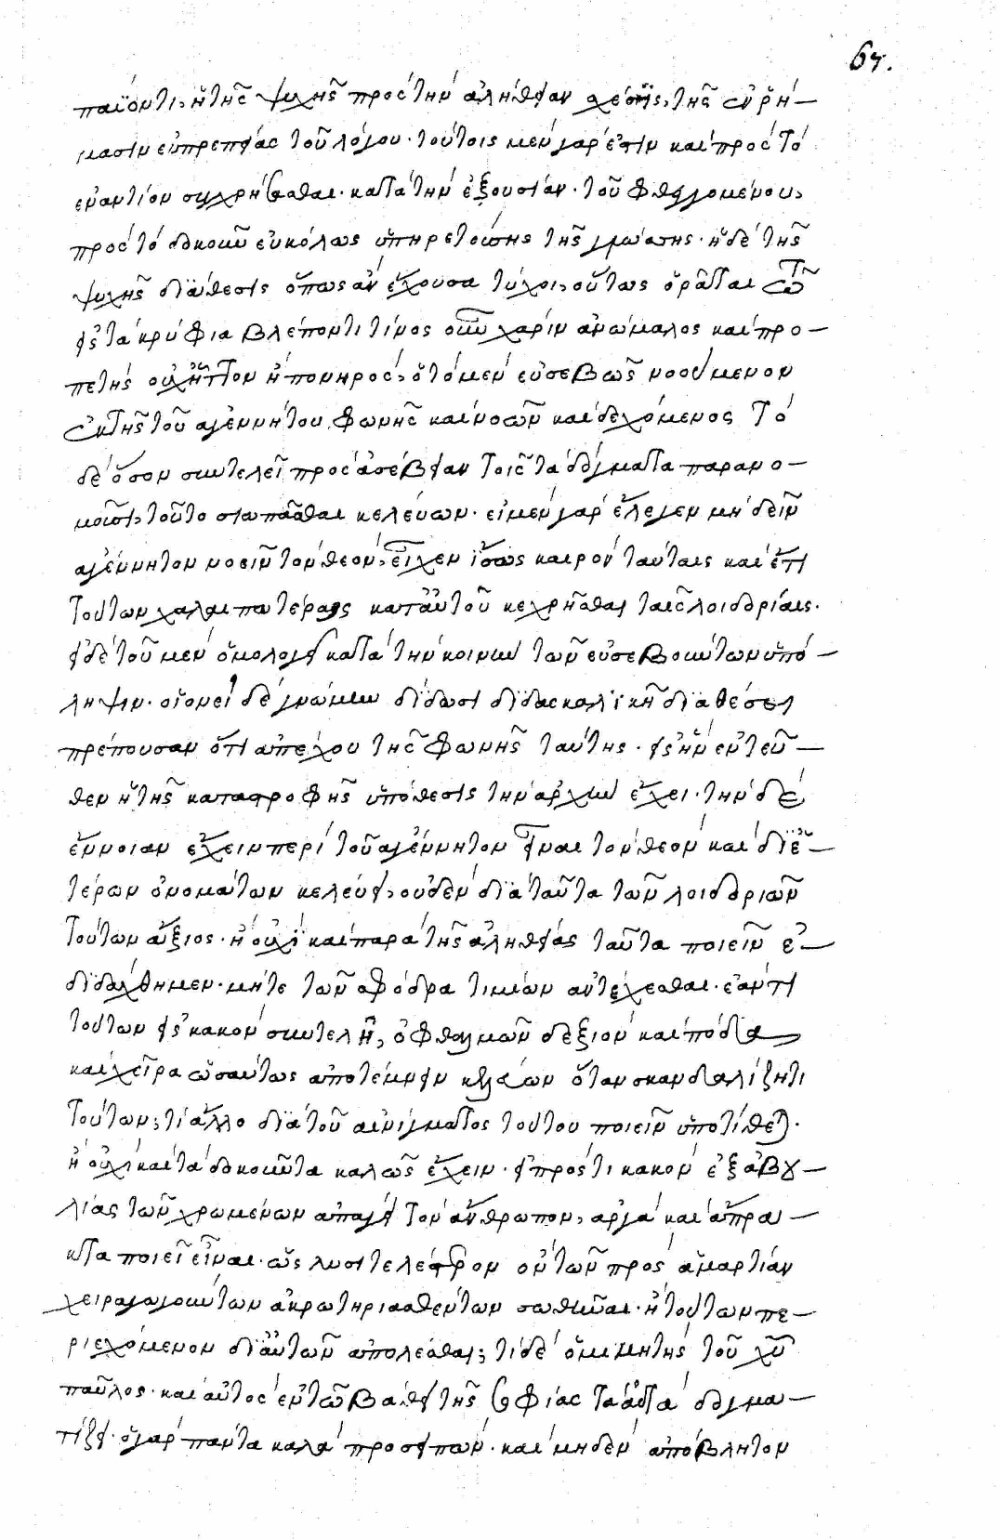 67.
παϊόντι, ἢ τῆς ψυχῆς πρὸς τὴν ἀλήθειαν σχέσεις, τῆς ἐν ῥή-
μασιν εὐπρεπείας τοῦ λόγου· τούτοις μὲν γάρ ἐστιν καὶ πρὸς τὸ
ἐναντίον συγχρήσασθαι· κατὰ τὴν ἐξουσίαν· τοῦ φθεγγομένου,
πρὸς τὸ δοκοῦν εὐκόλως ὑπηρετούσης τῆς γλώττης· ἡ δὲ τῆς
ψυχῆς διάθεσις ὅπως ἂν ἔχουσα τύχοι, οὕτως ὁρᾶται τῷ
εἰς τὰ κρύφια βλέποντι τίνος οὖν χάριν ἀνώμαλος καὶ προ-
πετὴς οὐχ ἧττον ἢ πονηρὸς, ὁ τὸ μὲν εὐσεβῶς νοούμενον
ἐκ τῆς τοῦ ἀγεννήτου φωνῆς καὶ νοῶν καὶ δεχόμενος τὸ
δὲ ὅσον συντελεῖ πρὸς ἀσέβειαν τοῖς τὰ δόγματα παρανο-
μοῦσι, τοῦτο σιωπᾶσθαι κελεύων· εἰ μὲν γὰρ ἔλεγεν μὴ δεῖν
ἀγέννητον νοεῖν τὸν θεὸν, εἶχεν ἴσως καιρὸν ταύταις καὶ ἔτι
τούτων χαλεπωτέραις κατ' αὐτοῦ κεχρῆσθαι ταῖς λοιδορίαις·
εἰ δὲ τοῦ μὲν ὁμολογεῖ κατὰ τὴν κοινὴν τῶν εὐσεβούντων ὑπό-
ληψιν· οἱονεὶ δὲ γνώμην δίδωσι διδασκαλικῇ διαθέσει
πρέπουσαν ὅτι ἀπέχου τῆς φωνῆς ταύτης· εἰς ἣν ἐντεῦ-
θεν ἡ τῆς καταστροφῆς ὑπόθεσις τὴν ἀρχὴν ἔχει· τὴν δὲ
ἔννοιαν ἔχειν περὶ τοῦ ἀγέννητον εἶναι τὸν θεὸν καὶ δι' ἑ-
τέρων ὀνομάτων κελεύει, οὐδὲν διὰ ταῦτα τῶν λοιδοριῶν
τούτων ἄξιος· ἢ οὐχὶ καὶ παρὰ τῆς ἀληθείας ταῦτα ποιεῖν ἐ-
διδάχθημεν· μήτε τῶν σφόδρα τιμίων ἀντέχεσθαι· ἐάν τι
τούτων εἰς κακὸν συντελῇ, ὁ ὀφθαλμὸν δεξιὸν καὶ πόδα
καὶ χεῖρα ὡσαύτως ἀποτέμνειν κελεύων ὅταν σκανδαλίζῃ τι
τούτων; τί ἄλλο διὰ τοῦ αἰνίγματος τούτου ποιεῖν ὑποτίθεται·
ἢ οὐχὶ καὶ τὰ δοκοῦντα καλῶς ἔχειν· εἰ πρός τι κακὸν ἐξ ἀβου-
λίας τῶν χρωμένων ἀπάγει τὸν ἄνθρωπον, ἀργὰ καὶ ἄπρα-
κτα ποιεῖ εἶναι· ὡς λυσιτελέστερον ὂν τῶν πρὸς ἁμαρτίαν
χειραγωγούντων ἀκρωτηριασθέντων σωθῆναι· ἢ τούτων πε-
ριεχόμενον δι' αὐτῶν ἀπολέσθαι; τί δὲ ὁ μιμητὴς τοῦ χυ
παῦλος· καὶ αὐτὸς ἐν τῷ βάθει τῆς σοφίας τὰ αὐτὰ δογμα-
τίζει· ὁ γὰρ πάντα καλὰ προσειπὼν· καὶ μηδὲν ἀπόβλητον